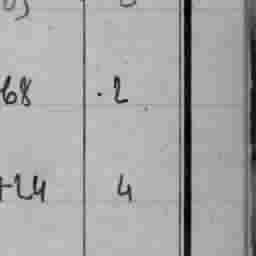 68 . 2
+24 4